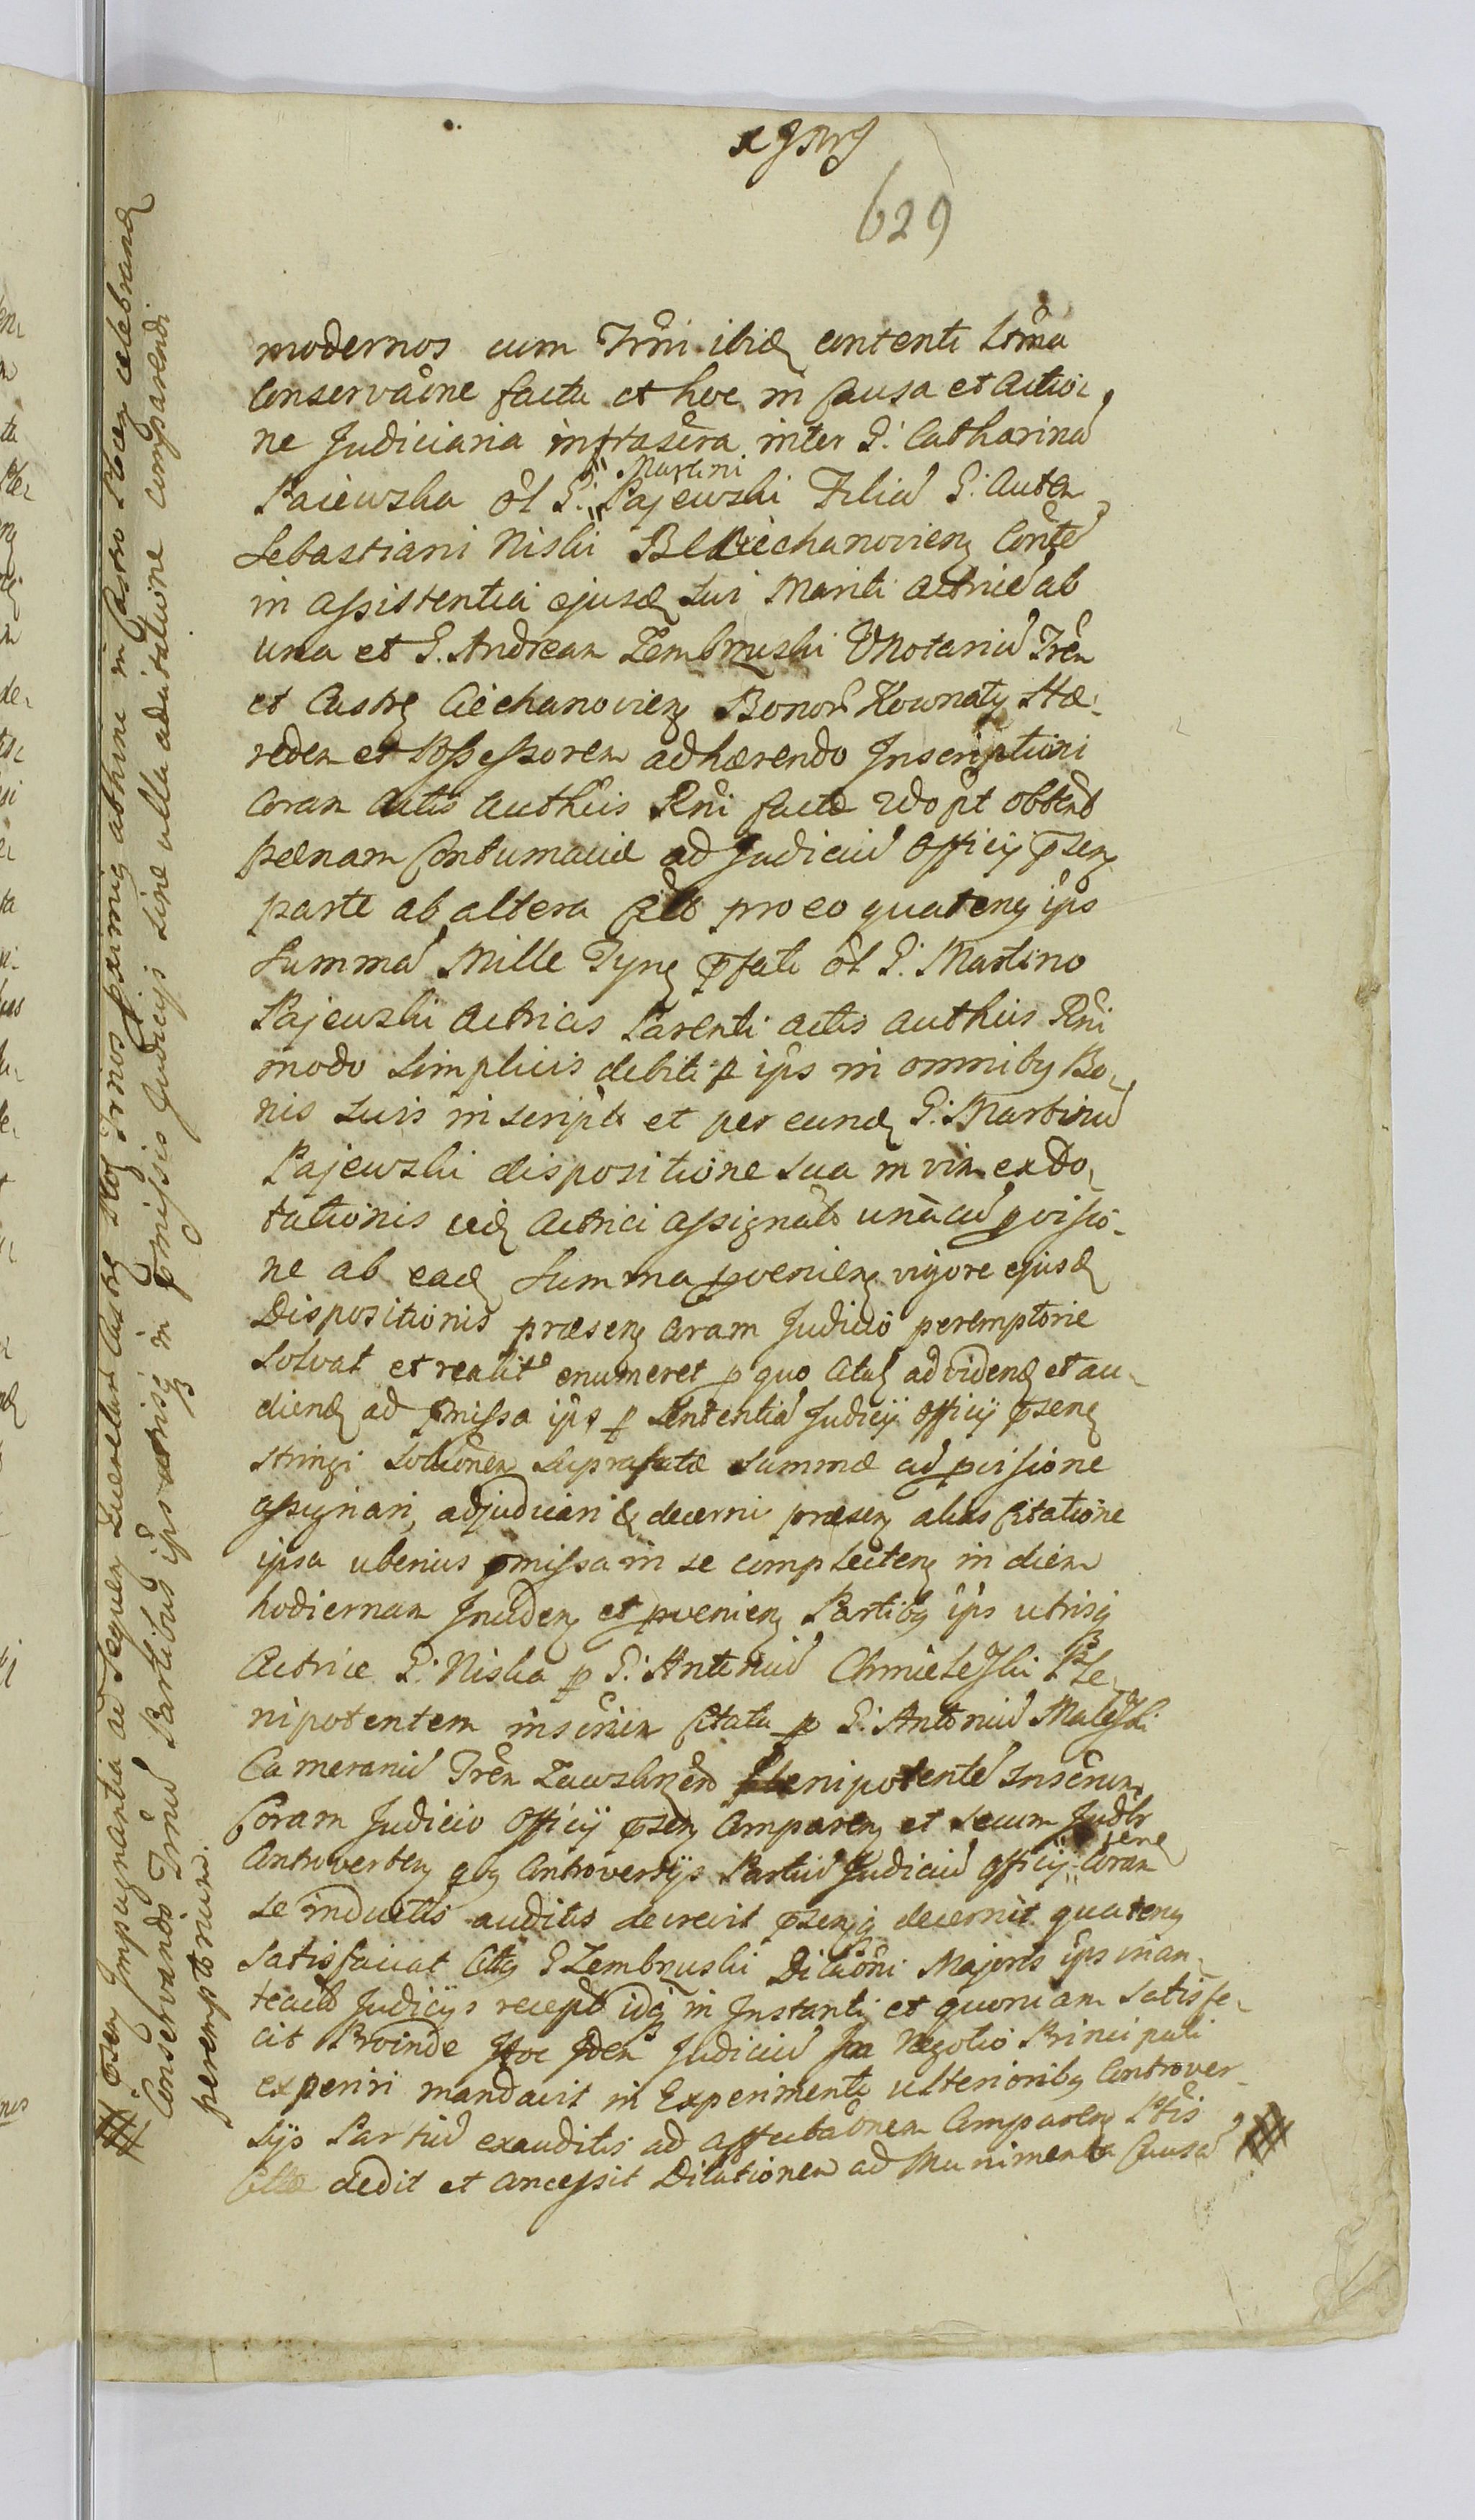 629
modernos cum Trni ibid contenti
Conservaone facta et hoc in Causa et Actio
ne Judiciaria infrascra inter G: Catharina
Paiewska ol G: Martini Pajewski Filia G: Autem
Sebastiani Niski B Ciechanovien
in assistentia ejusd sui Mariti Actrice ab
una et G. Andream Zembrzuski VNotariu Tren
et Castr Ciechanovien Bonor Kownaty Hæ
redem et Possessorem adhærendo Inscriptioni
Coram Actis Authcis Rni factæ
pænam Contumaciæ ad Judiciu Officij psen
parte ab altera Citto pro eo quaten ips
Summa Mille Tyn pfati ol G: Martino
Pajewski Actricis Parenti Actis Authcis Rni
modo simplicis debiti p ips in omnib Bo
nis suis inscripta et per eund G: Martinu
Pajewski dispositione sua in vim exdo
tationis eid Actrici assignato una cu pvisio
ne ab ead Summa pvenien vigore ejusd
Dispositionis præsen Coram Judicio peremptorie
solvat et realit enumeret p quo Citat ad videnđ et au
dienđ ad pmissa ips p Sententia Judicij Officij psen
stringi Solutionem suprafatæ Summæ ad pvisione
assignari, adjudicari & decerni præsen alias Citatione
ipsa uberius pmissa in se complecten in diem
hodiernam Inciden et pvenien Partib ips utrisq
Actrice G: Niska p G: Antoniu Chmieleski Ple
nipotentem inscrien Citato p G: Antoniu Maleski
Camerariu Tren Zawskrzen Plenipotente inscrium
Coram Judicio Officij psen Comparen et secum Judlr
Controverten qb Controversijs Partiu Judiciu Officij psens Coram
se inductis auditis decrevit psenq decernit quaten
satisfaciat Citt G Zembrzuski Dilaoni Majoris ips in an
teactis Judicijs recept idq in Instanti et quoniam satisfe
cit Proinde Hoc Idem Judiciu In Negotio Principali
experiri mandavit in Experimento ulteriorib Controver
sijs Partiu exauditis ad affectaonem Comparen Ptis
Cittæ dedit et Concessit Dilationem ad Munimenta Causa
psen Impugnantia ad Sequen Querelar Castr Ploc Trnos primi abhinc in Castro Plocen celebrand
Conservando Trnu Partibus ips utrisq in pmissis Judicijs sine ulla adcitatione comparendi
peremptorium.